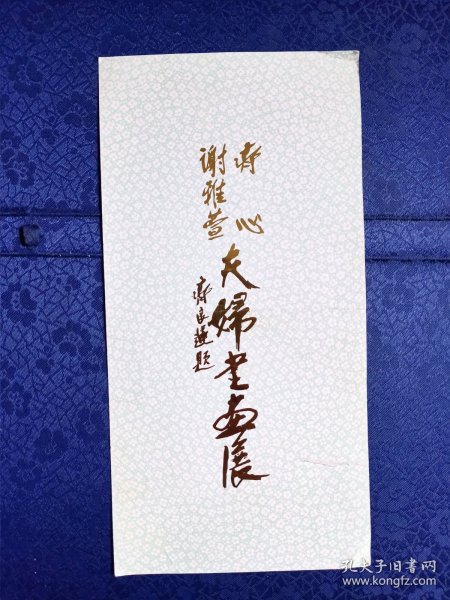 齐心
谢雅萱
夫婦书画展
齐良迟题
孔夫子旧书网
www.kongfz.com